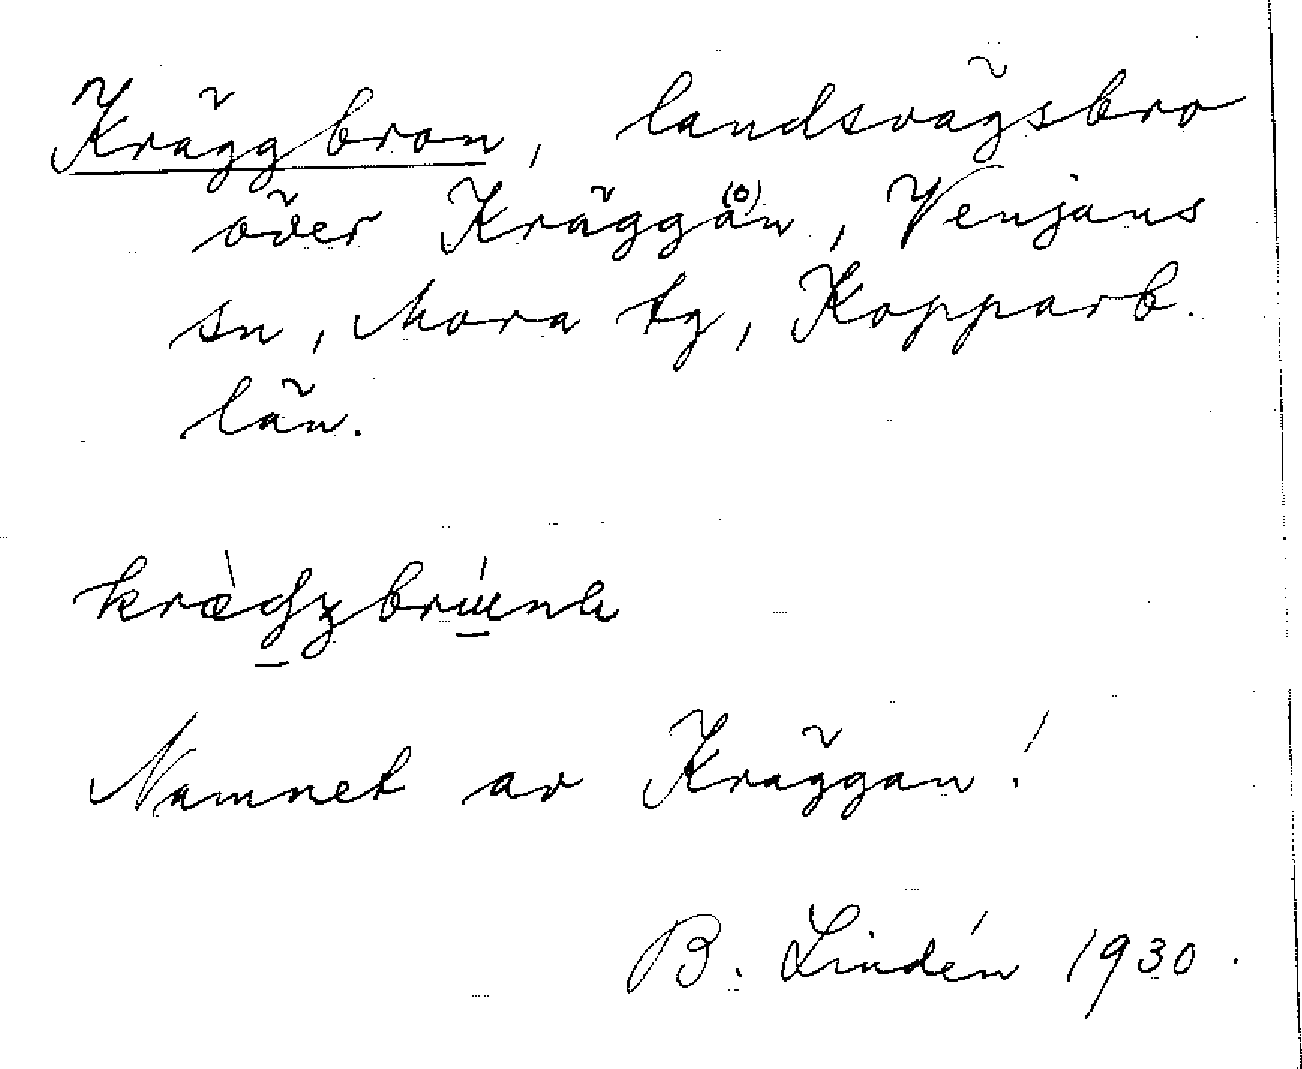 Kräggbron, landsvägsbro
över Kräggån, Venjans
sn, Mora tg, Kopparb.
län.
Namnet av Kräggan!
B. Lindén 1930.